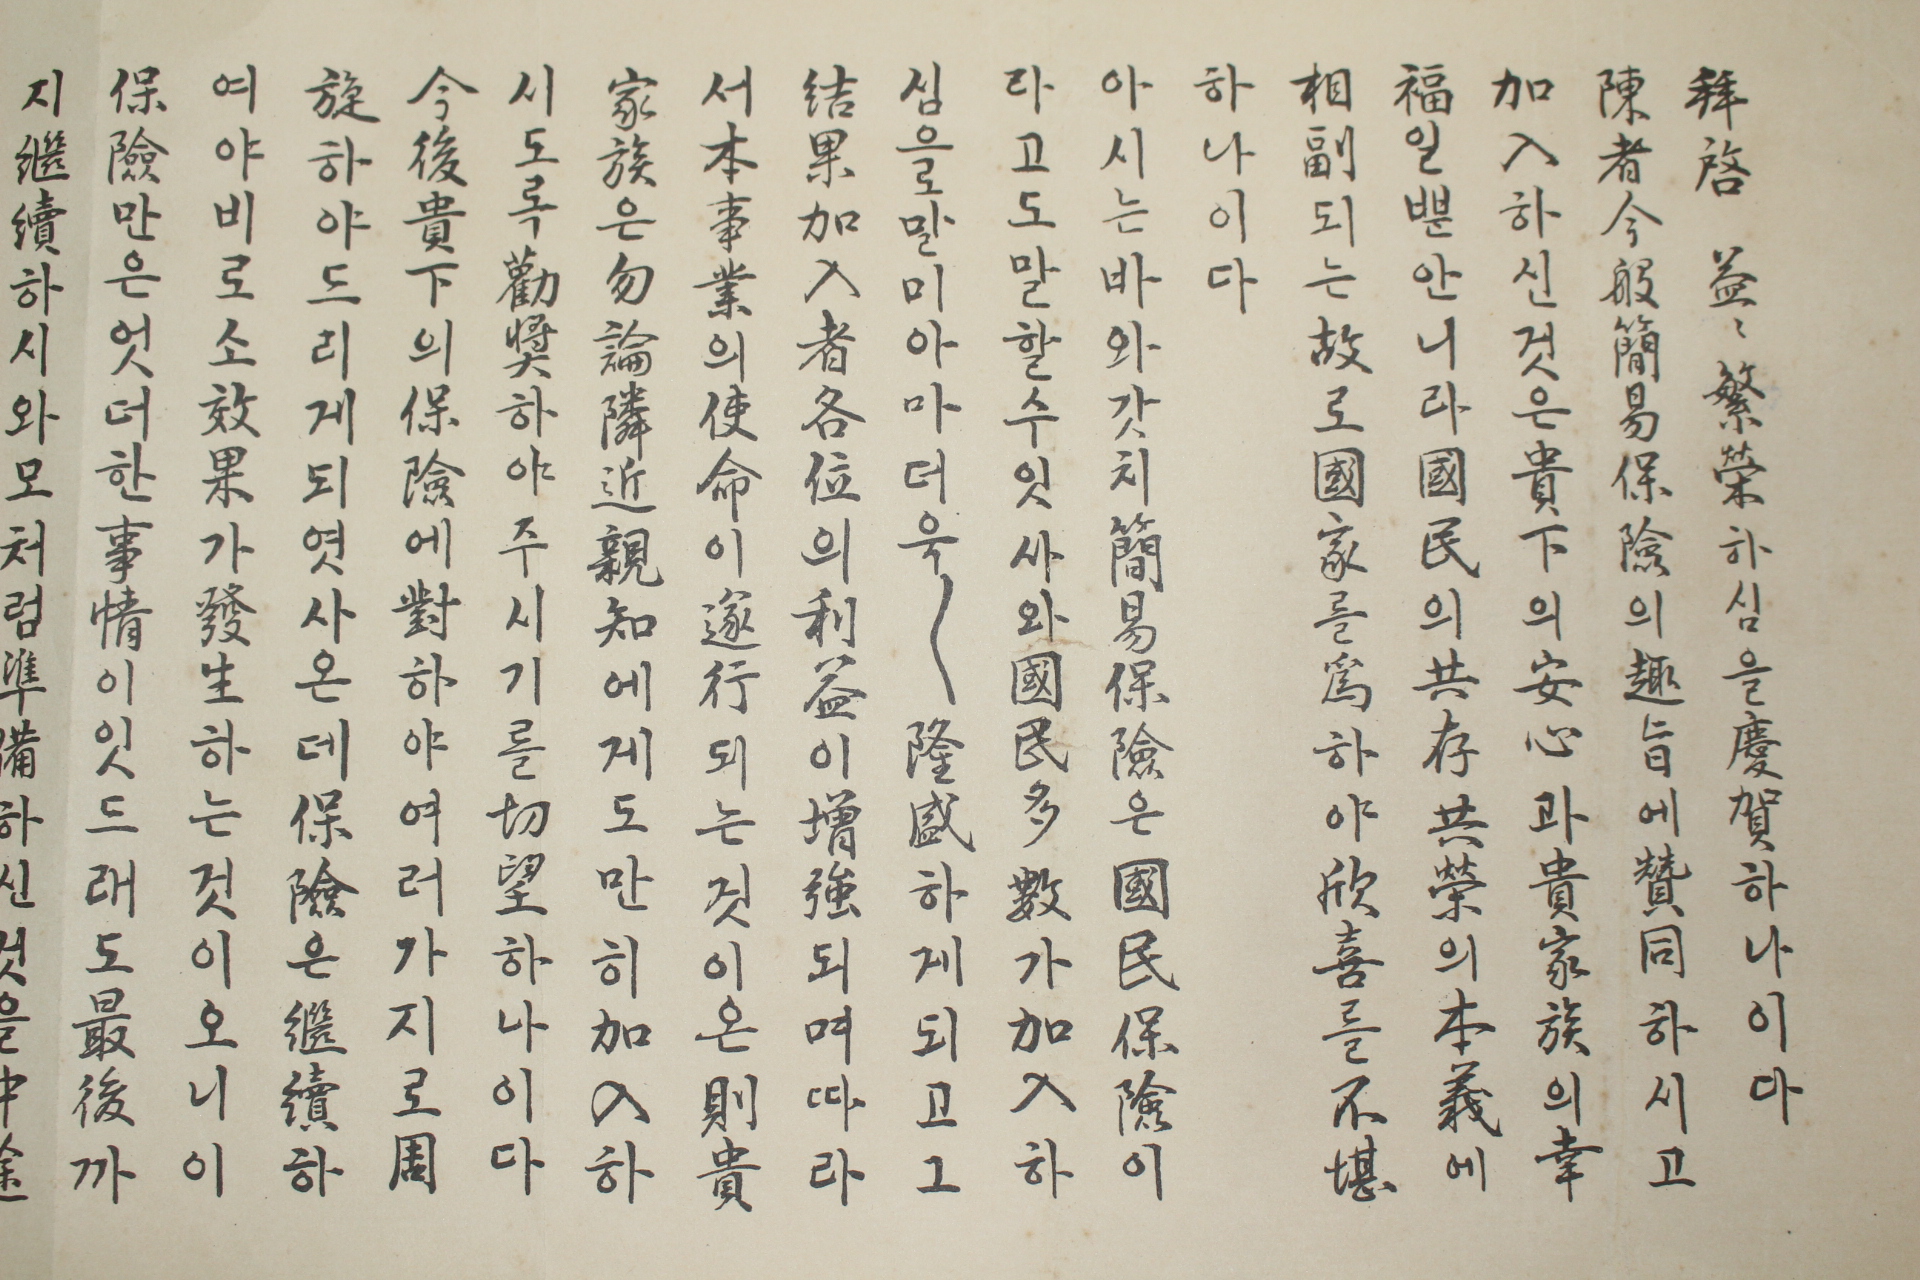 拜啓 益〻繁榮하심을慶賀하나이다
陳者今般簡易保險의趣旨에贊同하시고
加入하신것은貴下의安心과貴家族의幸
福일뿐안니라國民의共存共榮의本義에
相副되는故로國家를爲하야欣喜를不堪
하나이다
아시는바와갓치簡易保險은國民保險이
라고도말할수잇사와國民多數가加入하
심을말미아마더욱〱隆盛하게되고그
結果加入者各位의利益이增強되며따라
서本事業의使命이遂行되는것이온則貴
家族은勿論隣近親知에게도만히加入하
시도록勸奬하야주시기를切望하나이다
今後貴下의保險에對하야여러가지로周
旋하야드리게되엿사온데保險은繼續하
여야비로소效果가發生하는것이오니이
保險만은엇더한事情이잇드래도最後까
지繼續하시와모처럼準備하신것을中途